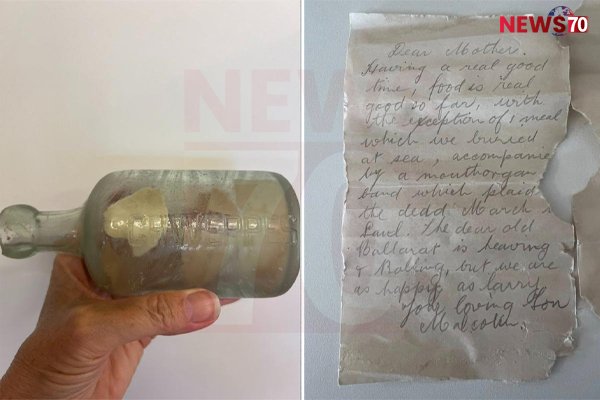 NEWS70
NEWS
70
Dear Mother.
Having a real good
time, food is real
good so far, with
the exception of 1 meal
which we buried
at sea, accompanie
by a mouthorgan
band which plaid
the dedd March i
Land. The dear old
Ballarat is heaving
& Bolling, but we are
as happy as larry
Your loving Son
Malcolm.